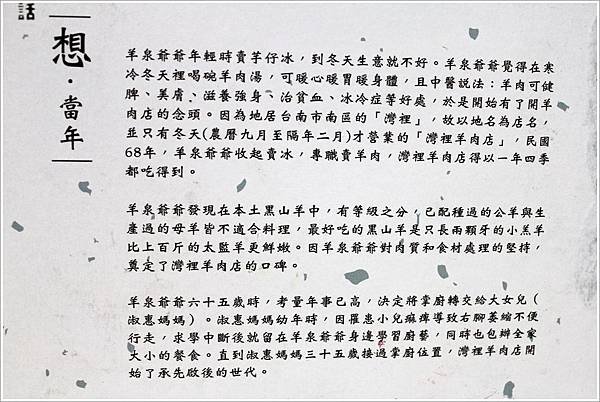 話
想・當年
羊泉爺爺年輕時賣芋仔冰，到冬天生意就不好。羊泉爺爺覺得在寒
冷冬天裡喝碗羊肉湯，可暖心暖胃暖身體，且中醫說法：羊肉可健
脾、美膚、滋養強身、治貧血、冰冷症等好處，於是開始有了開羊
肉店的念頭。因為地居台南市南區的「灣裡」，故以地名為店名，
並只有冬天(農曆九月至隔年二月)才營業的「灣裡羊肉店」，民國
68年，羊泉爺爺收起賣冰，專職賣羊肉，灣裡羊肉店得以一年四季
都吃得到。
羊泉爺爺發現在本土黑山羊中，有等級之分，已配種過的公羊與生
產過的母羊皆不適合料理，最好吃的黑山羊是只長兩顆牙的小羔羊
比上百斤的太監羊更鮮嫩。因羊泉爺爺對肉質和食材處理的堅持，
奠定了灣裡羊肉店的口碑。
羊泉爺爺六十五歲時，考量年事已高，決定將掌廚轉交給大女兒（
淑惠媽媽）。淑惠媽媽幼年時，因罹患小兒麻痺導致右腳萎縮不便
行走，求學中斷後就留在羊泉爺爺身邊學習廚藝，同時也包辦全家
大小的餐食。直到淑惠媽媽三十五歲接過掌廚位置，灣裡羊肉店開
始了承先啟後的世代。